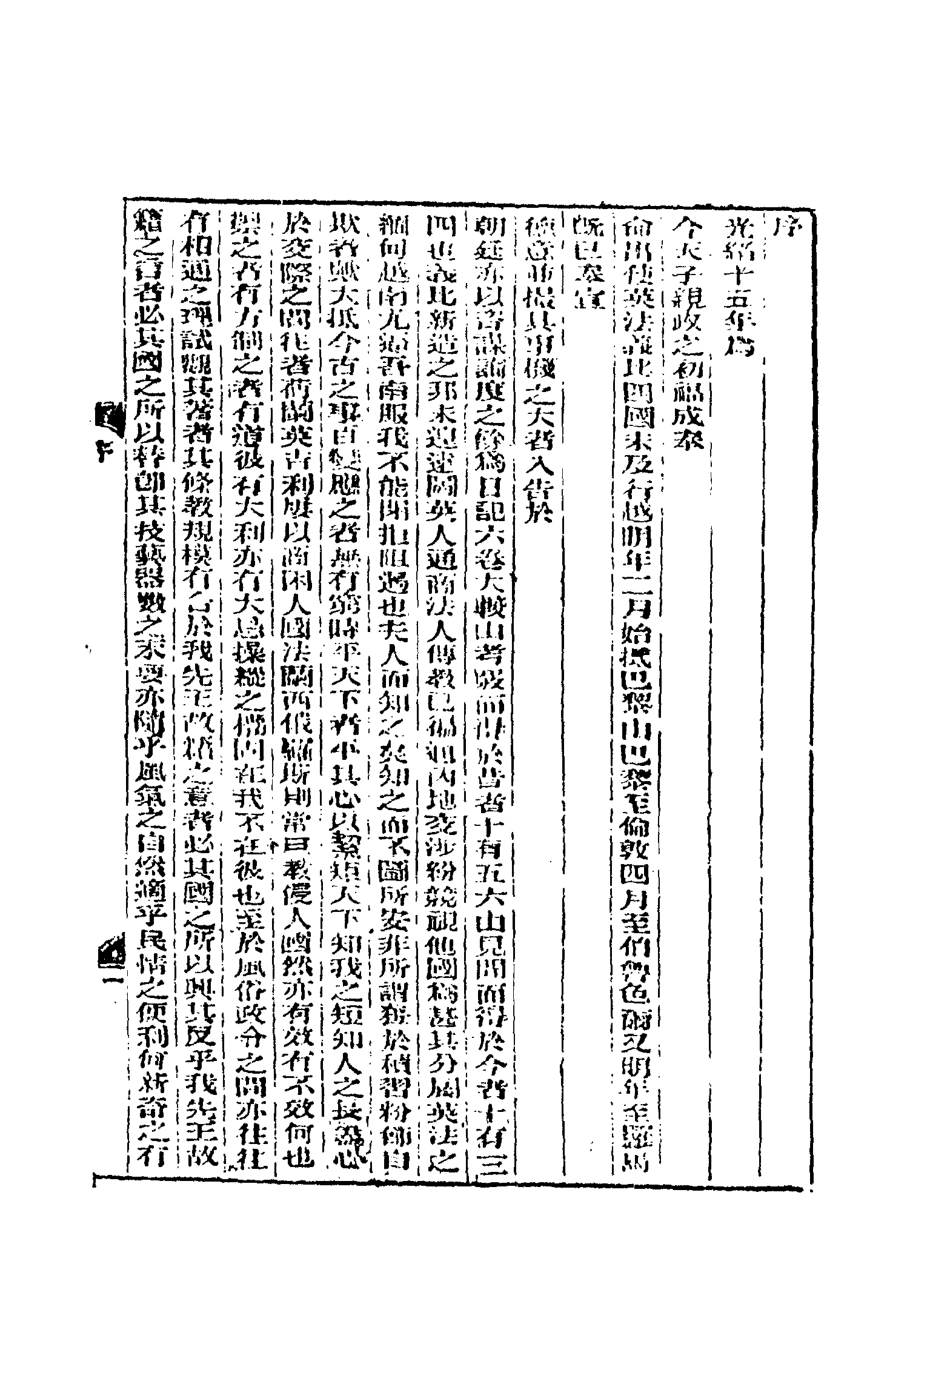 序
光緒十五年爲
今天子親政之初福成奉
命出使英法義比四國未及行越明年二月始抵巴黎由巴黎至倫敦四月至伯魯色爾又明年至羅馬
旣已奉宣
德意並撮其事機之大者入告於
朝廷亦以咨謀詢度之餘爲日記六卷大較由考覈而得於昔者十有五六由見聞而得於今者十有三
四也義比新造之邦未遑遠圖英人通商法人傳敎已徧通內地交涉紛競視他國爲甚其分屬英法之
緬甸越南尤逼吾南服我不能閉拒阻遏也夫人而知之矣知之而不圖所安非所謂狃於積習粉飾自
欺者歟大抵今古之事百變應之者無有窮時平天下者平其心以絜矩天下知我之短知人之長盡心
於交際之間往者荷蘭英吉利屢以商困人國法蘭西俄羅斯則常曰敎侵人國然亦有效有不效何也
禦之者有方制之者有道彼有大利亦有大忌操縱之權固在我不在彼也至於風俗政令之間亦往往
有相通之理試觀其著者其條敎規模有合於我先王故籍之意者必其國之所以興其反乎我先王故
籍之旨者必其國之所以替卽其技藝器數之末要亦隨乎風氣之自然適乎民情之便利何新奇之有
序
一